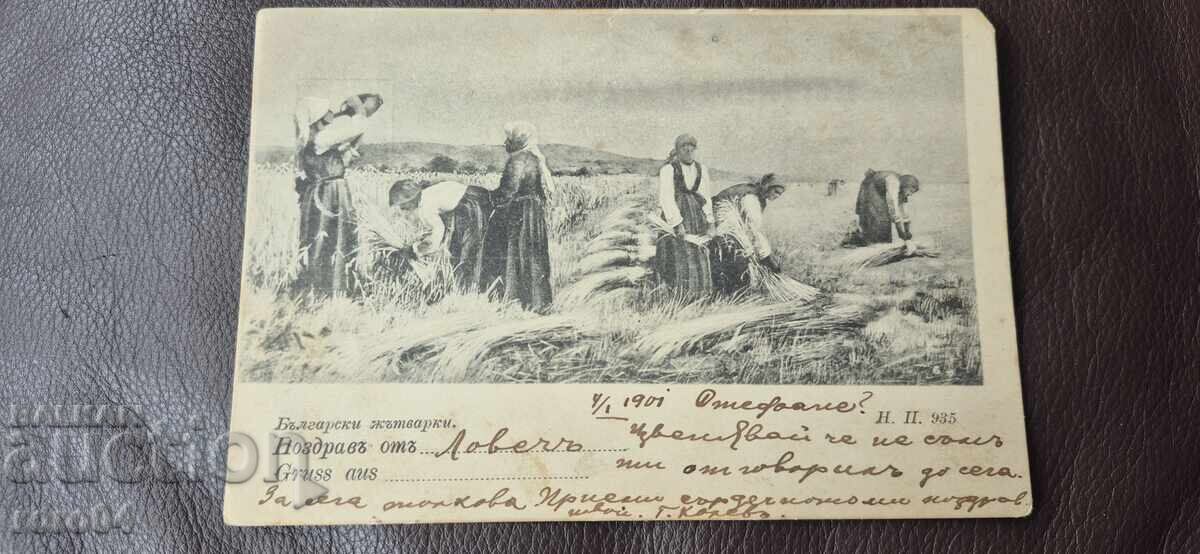 4/I 1901 Стефане?
Български жътварки.
Н. П. 935
Поздравъ отъ Ловечъ
Извенявай че не съмъ
Gruss aus
ти отговорилъ до сега.
За сега толкова Приеми сърдечното ми поздрав.
твой. Г. Колевъ.
auction
turo04